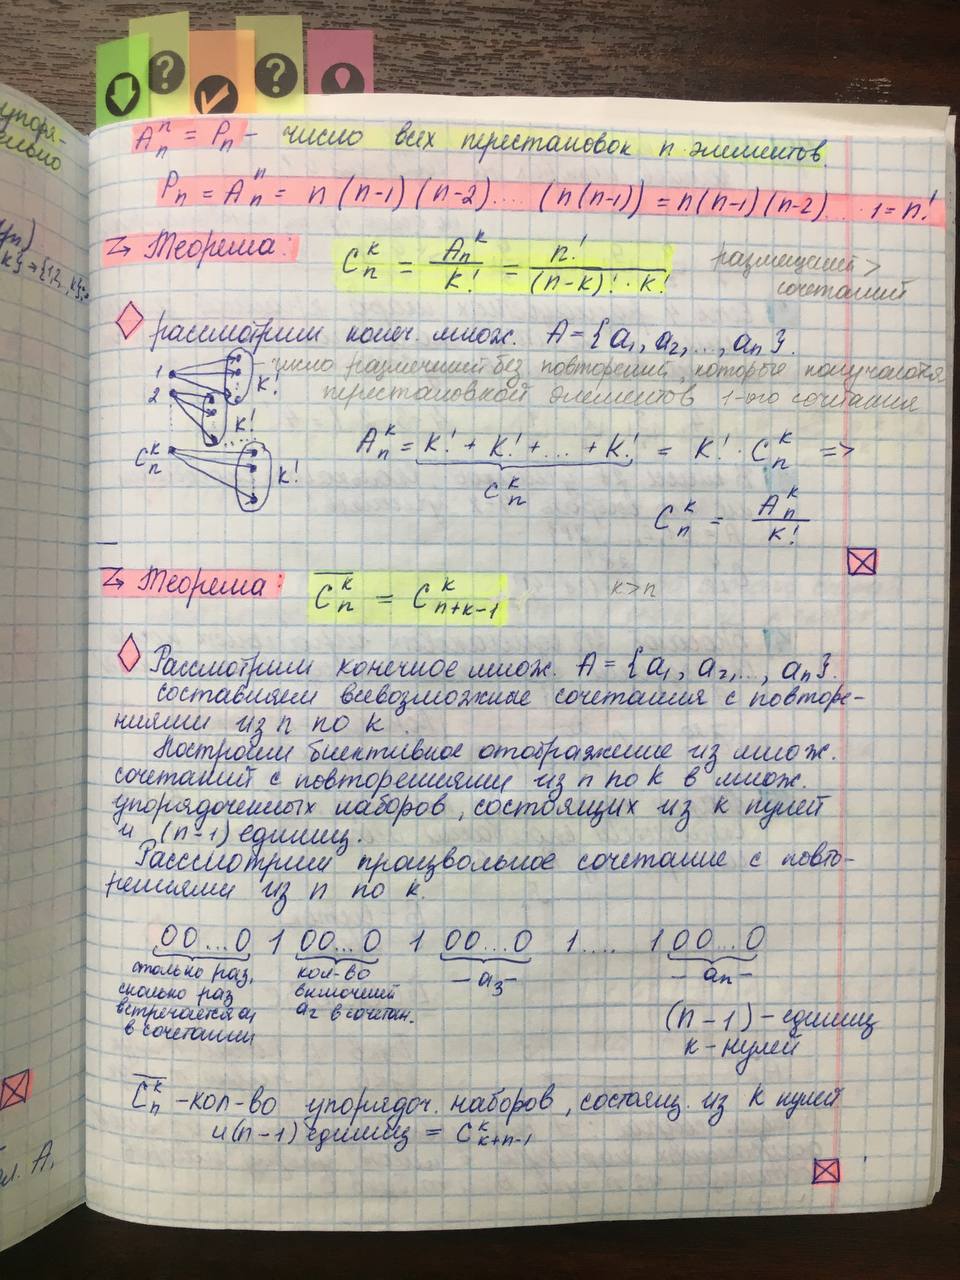 упоря-
ельно
Aₙⁿ = Pₙ – число всех перестановок n элементов.
Pₙ = Aₙⁿ = n (n-1) (n-2) .... (n(n-1)) = n(n-1)(n-2) ... 1 = n!
Теорема: Cₙᵏ = Aₙᵏ / k! = n! / ((n-k)! · k!)
размещений >
сочетаний
рассмотрим конеч. множ. A = {a₁, a₂, ..., aₙ}.
1
2
Cₙᵏ
k!
k!
k!
число размещений без повторений, которые получаются
перестановкой элементов 1-ого сочетания
Aₙᵏ = k! + k! + ... + k! = k! · Cₙᵏ =>
Cₙᵏ
Cₙᵏ = Aₙᵏ / k!
Теорема: C̅ₙᵏ = Cᵏₙ₊ₖ₋₁
k>n
Рассмотрим конечное множ. A = {a₁, a₂, ..., aₙ}.
составляем всевозможные сочетания с повторе-
ниями из n по k.
Построим биективное отображение из множ.
сочетаний с повторениями из n по k в множ.
упорядоченных наборов, состоящих из k нулей
и (n-1) единиц.
Расссмотрим произвольное сочетание с повто-
рениями из n по k.
00...0 1 00...0 1 00...0 1.... 1 00...0
столько раз,
сколько раз
встречается a₁
в сочетании
кол-во
включений
a₂ в сочетан.
– a₃ –
– aₙ –
(n-1) – единиц
k – нулей
C̅ₙᵏ – кол-во упорядоч. наборов, состоящ. из k нулей
и (n-1) единиц = Cᵏₖ₊ₙ₋₁